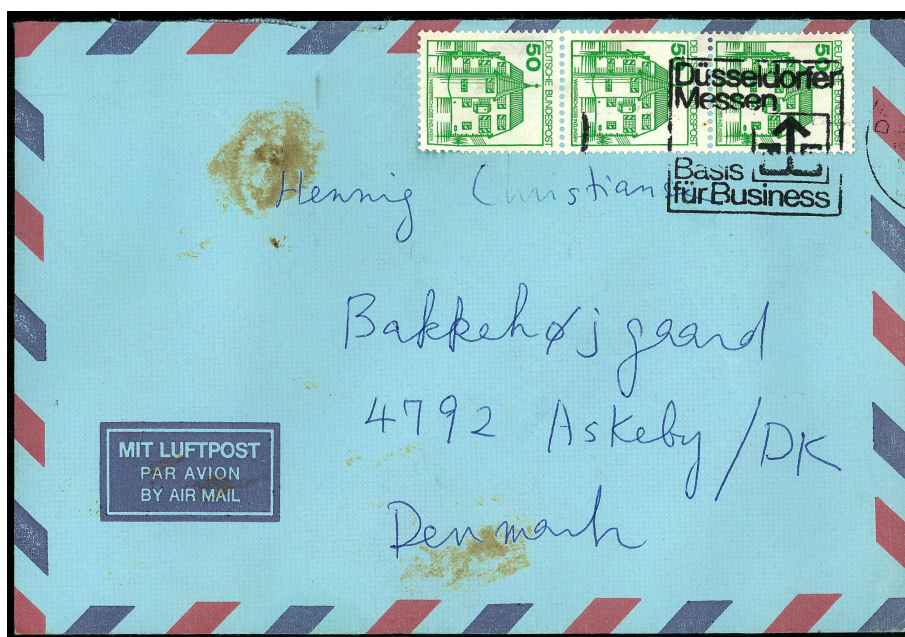 50
DEUTSCHE BUNDESPOST
50
DEUTSCHE BUNDESPOST
50
DEUTSCHE BUNDESPOST
Düsseldorfer
Messen
Basis
für Business
Hennig
Bakkehøjgaard
4792 Askeby/DK
Denmark
MIT LUFTPOST
PAR AVION
BY AIR MAIL